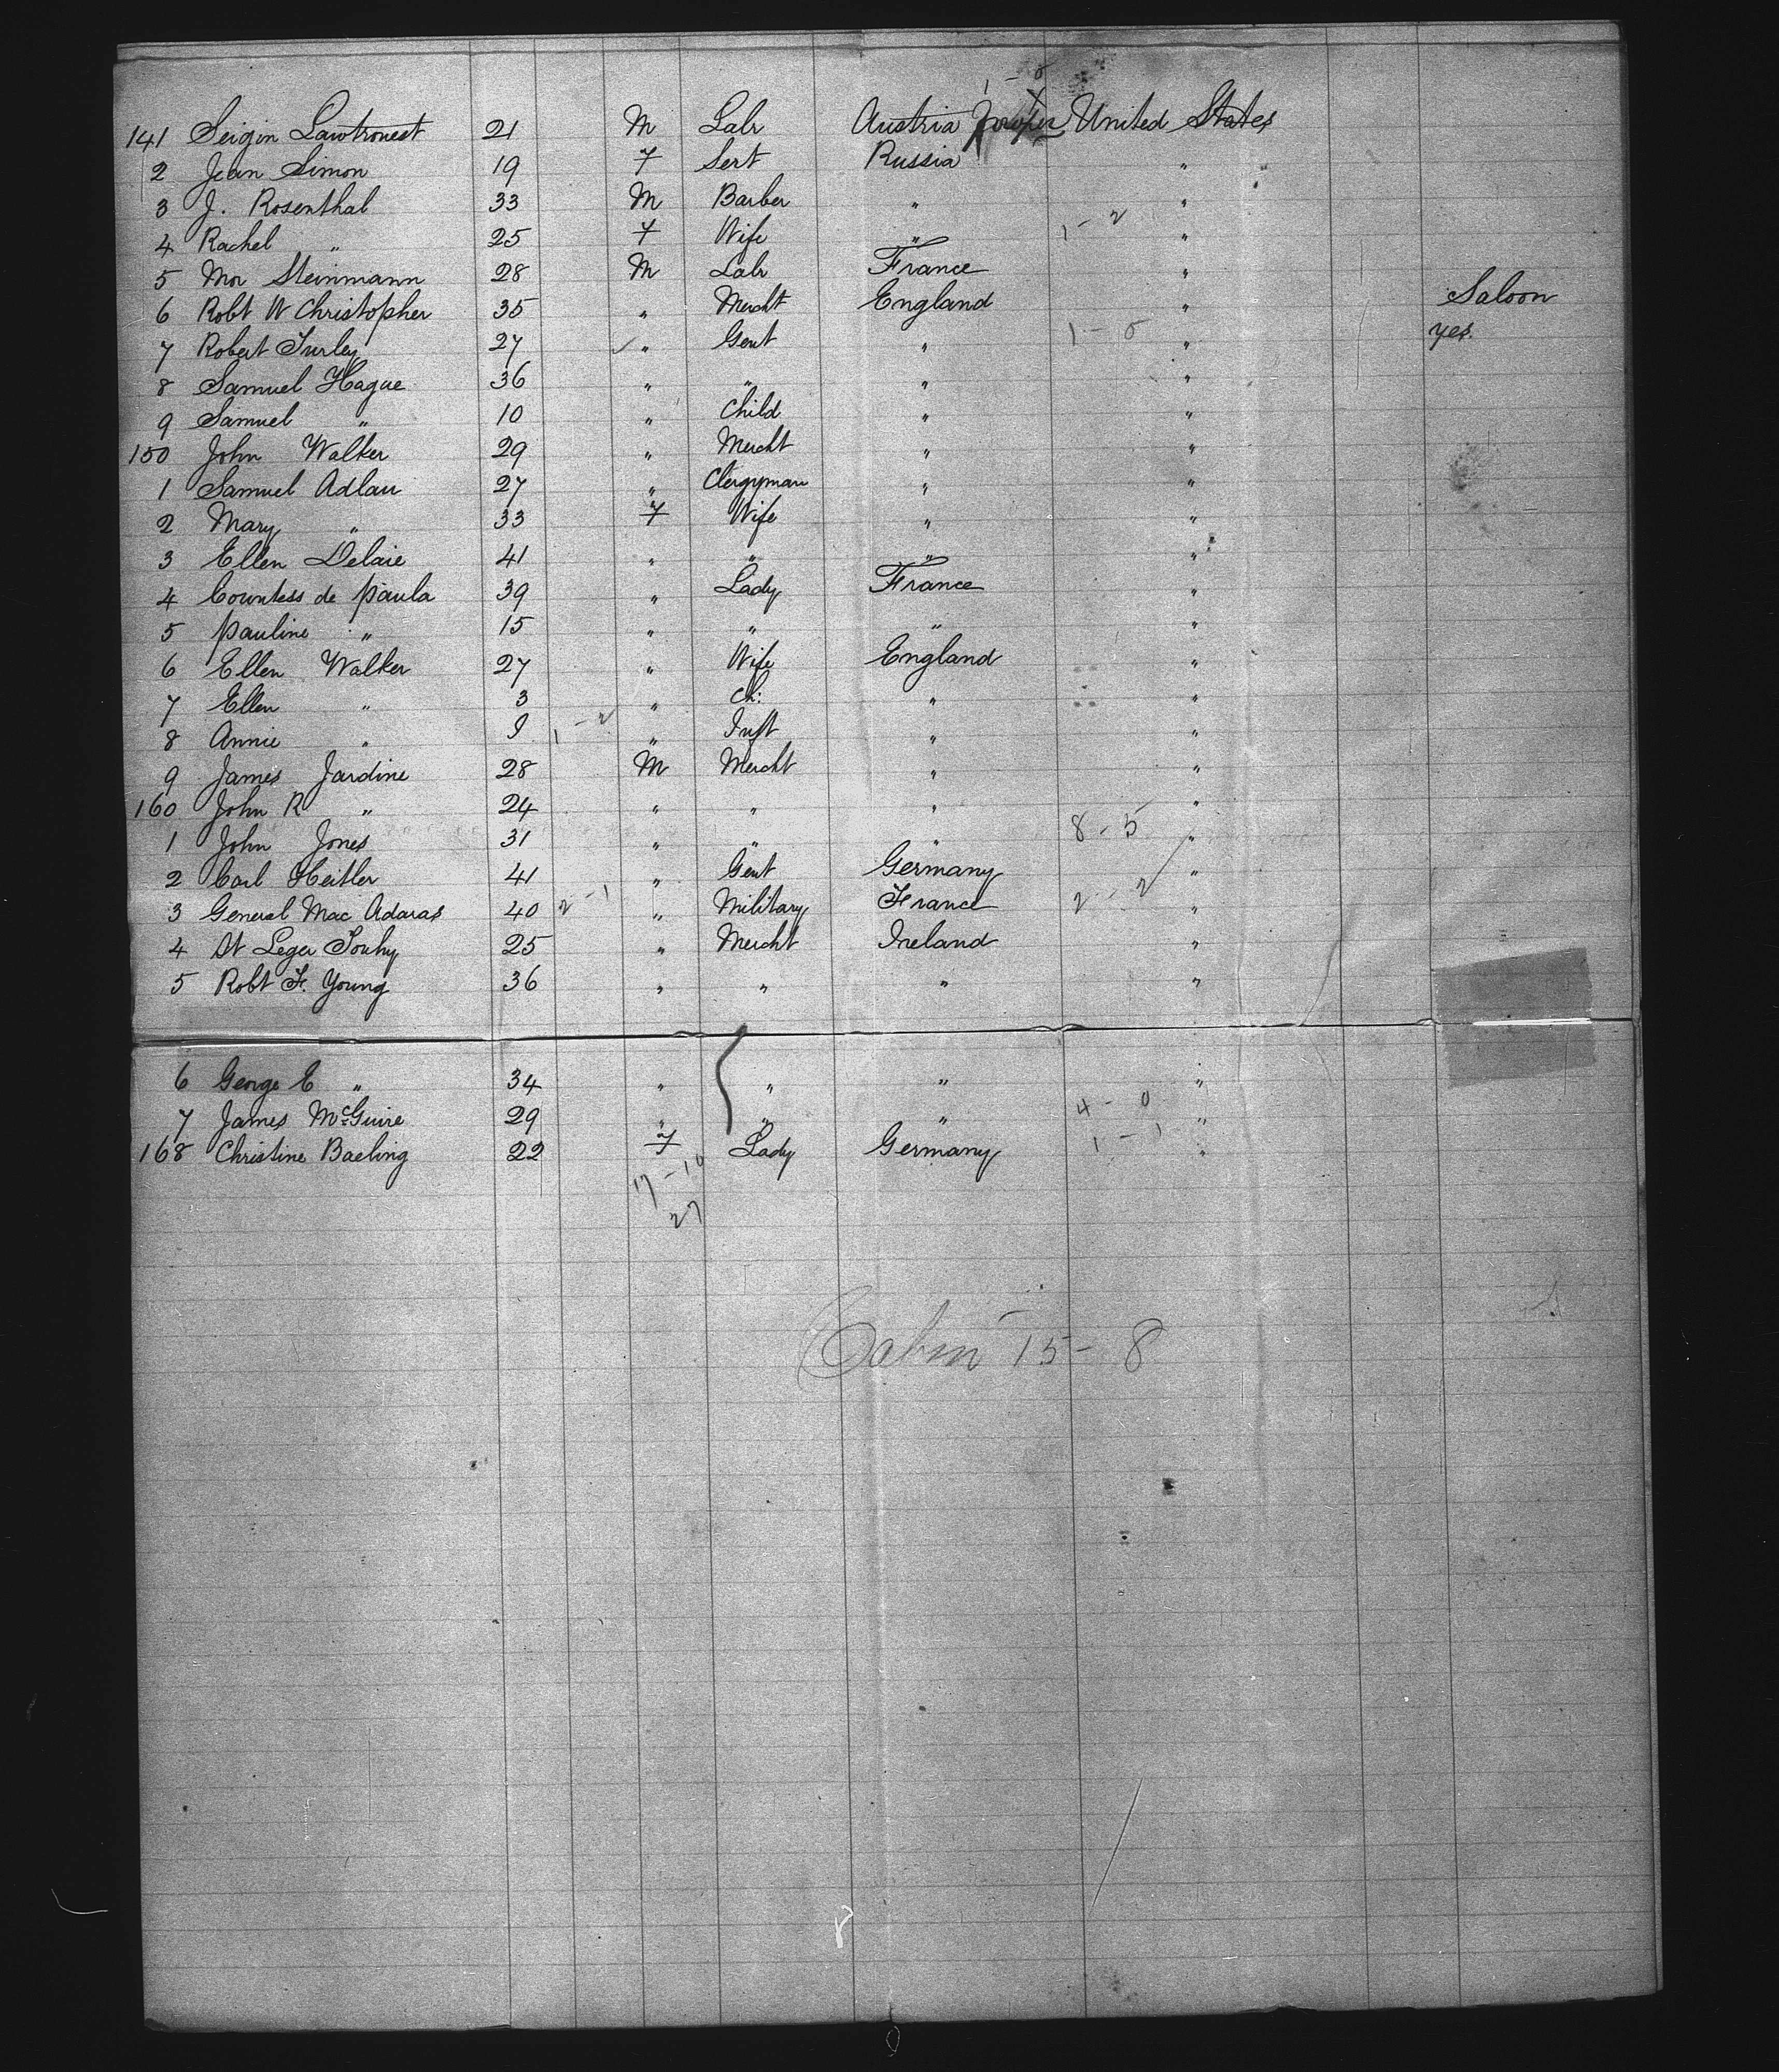 1 - 0
141 Seigin Lawtronest 21 M Labr Austria United States
2 Jean Simon 19 F Sert Russia "
3 J. Rosenthal 33 M Barber " "
4 Rachel " 25 F Wife " 1 - 2 "
5 Mor Steinmann 28 M Labr France "
6 Robt W Christopher 35 " Mercht England " Saloon
7 Robert Turley 27 " Gent " 1 - 0 " yes.
8 Samuel Hague 36 " " " "
9 Samuel " 10 " Child " "
150 John Walker 29 " Mercht " "
1 Samuel Adlau 27 " Clergyman " "
2 Mary " 33 F Wife " "
3 Ellen Delaie 41 " " " "
4 Countess de Paula 39 " Lady France "
5 Pauline " 15 " " " "
6 Ellen Walker 27 " Wife England "
7 Ellen " 3 " Ch: " "
8 Annie " I 1 - 2 " Inft " "
9 James Jardine 28 M Mercht " "
160 John R " 24 " " " "
1 John Jones 31 " " " 8 - 5 "
2 Carl Heitler 41 " Gent Germany "
3 General Mac Adaras 40 2 - 1 " Military France 2 - 2 "
4 St Leger Touhy 25 " Mercht Ireland "
5 Robt F. Young 36 " " " "
6 George E " 34 " " " "
7 James McGuire 29 " " " 4 - 0 "
168 Christine Baeling 22 F Lady Germany 1 - 1 "
17 - 10
27
Cabin 15 - 8